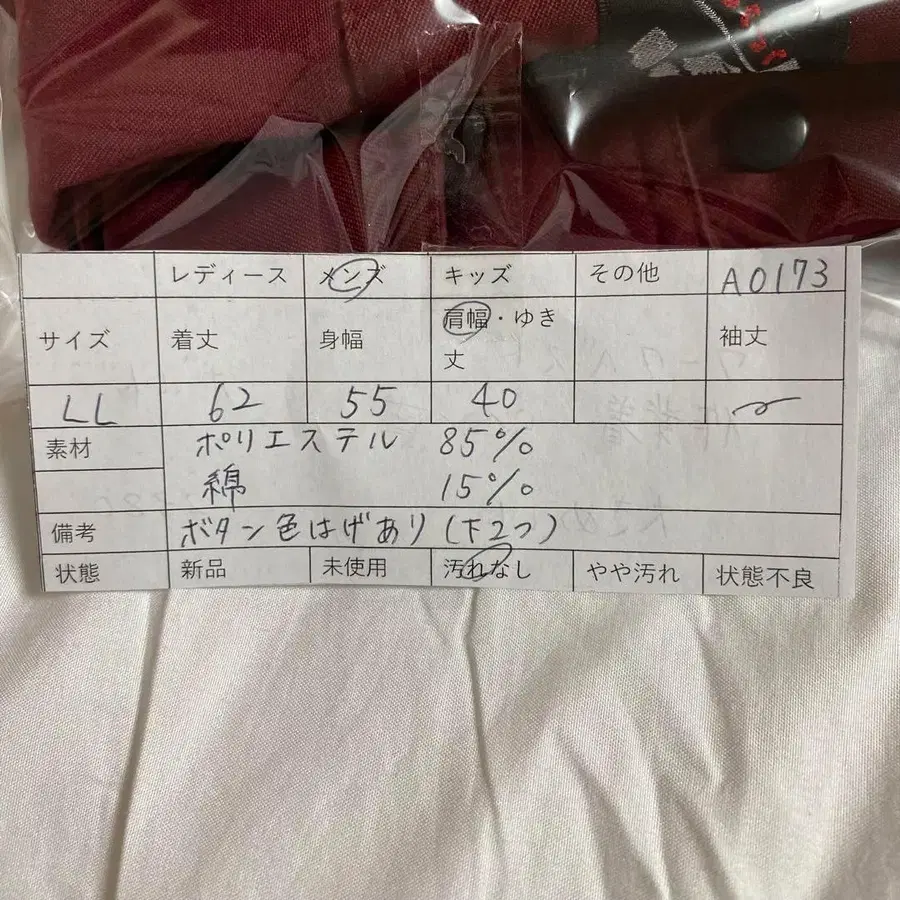 レディース メンズ キッズ その他 A0173
サイズ 着丈 身幅 肩幅・ゆき丈 袖丈
LL 62 55 40
素材 ポリエステル 85%
綿 15%
備考 ボタン色はげあり(下2つ)
状態 新品 未使用 汚れなし やや汚れ 状態不良